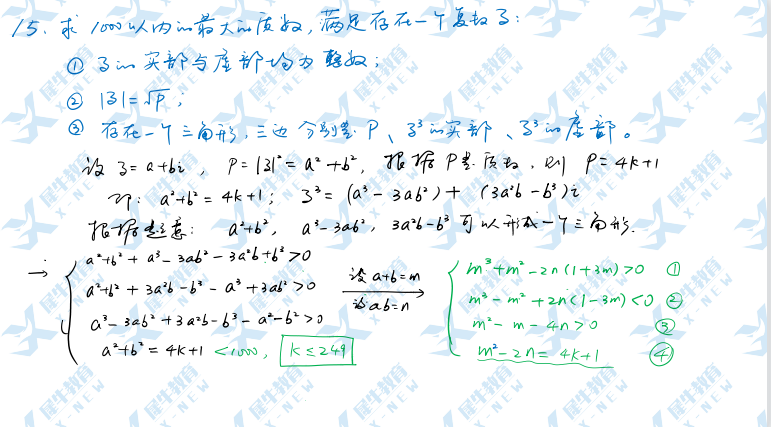 15. 求1000以内的最大的质数，满足存在一个复数z：
① z的实部与虚部均为整数；
② |z|=√p；
③ 存在一个三角形，三边分别是P、z³的实部、z³的虚部。
设 z=a+bi，P=|z|²=a²+b²，根据P是质数，则 P=4k+1
即：a²+b²=4k+1；z³=(a³-3ab²)+(3a²b-b³)i
根据题意：a²+b²，a³-3ab²，3a²b-b³可以形成一个三角形.
→ { a²+b²+a³-3ab²-3a²b+b³>0
a²+b²+3a²b-b³-a³+3ab²>0
a³-3ab²+3a²b-b³-a²-b²>0
a²+b²=4k+1 <1000, k≤249
设a+b=m
设ab=n
{ m³+m²-2n(1+3m)>0 ①
m³-m²+2n(1-3m)<0 ②
m²-m-4n>0 ③
m²-2n=4k+1 ④
犀牛教育
X-NEW